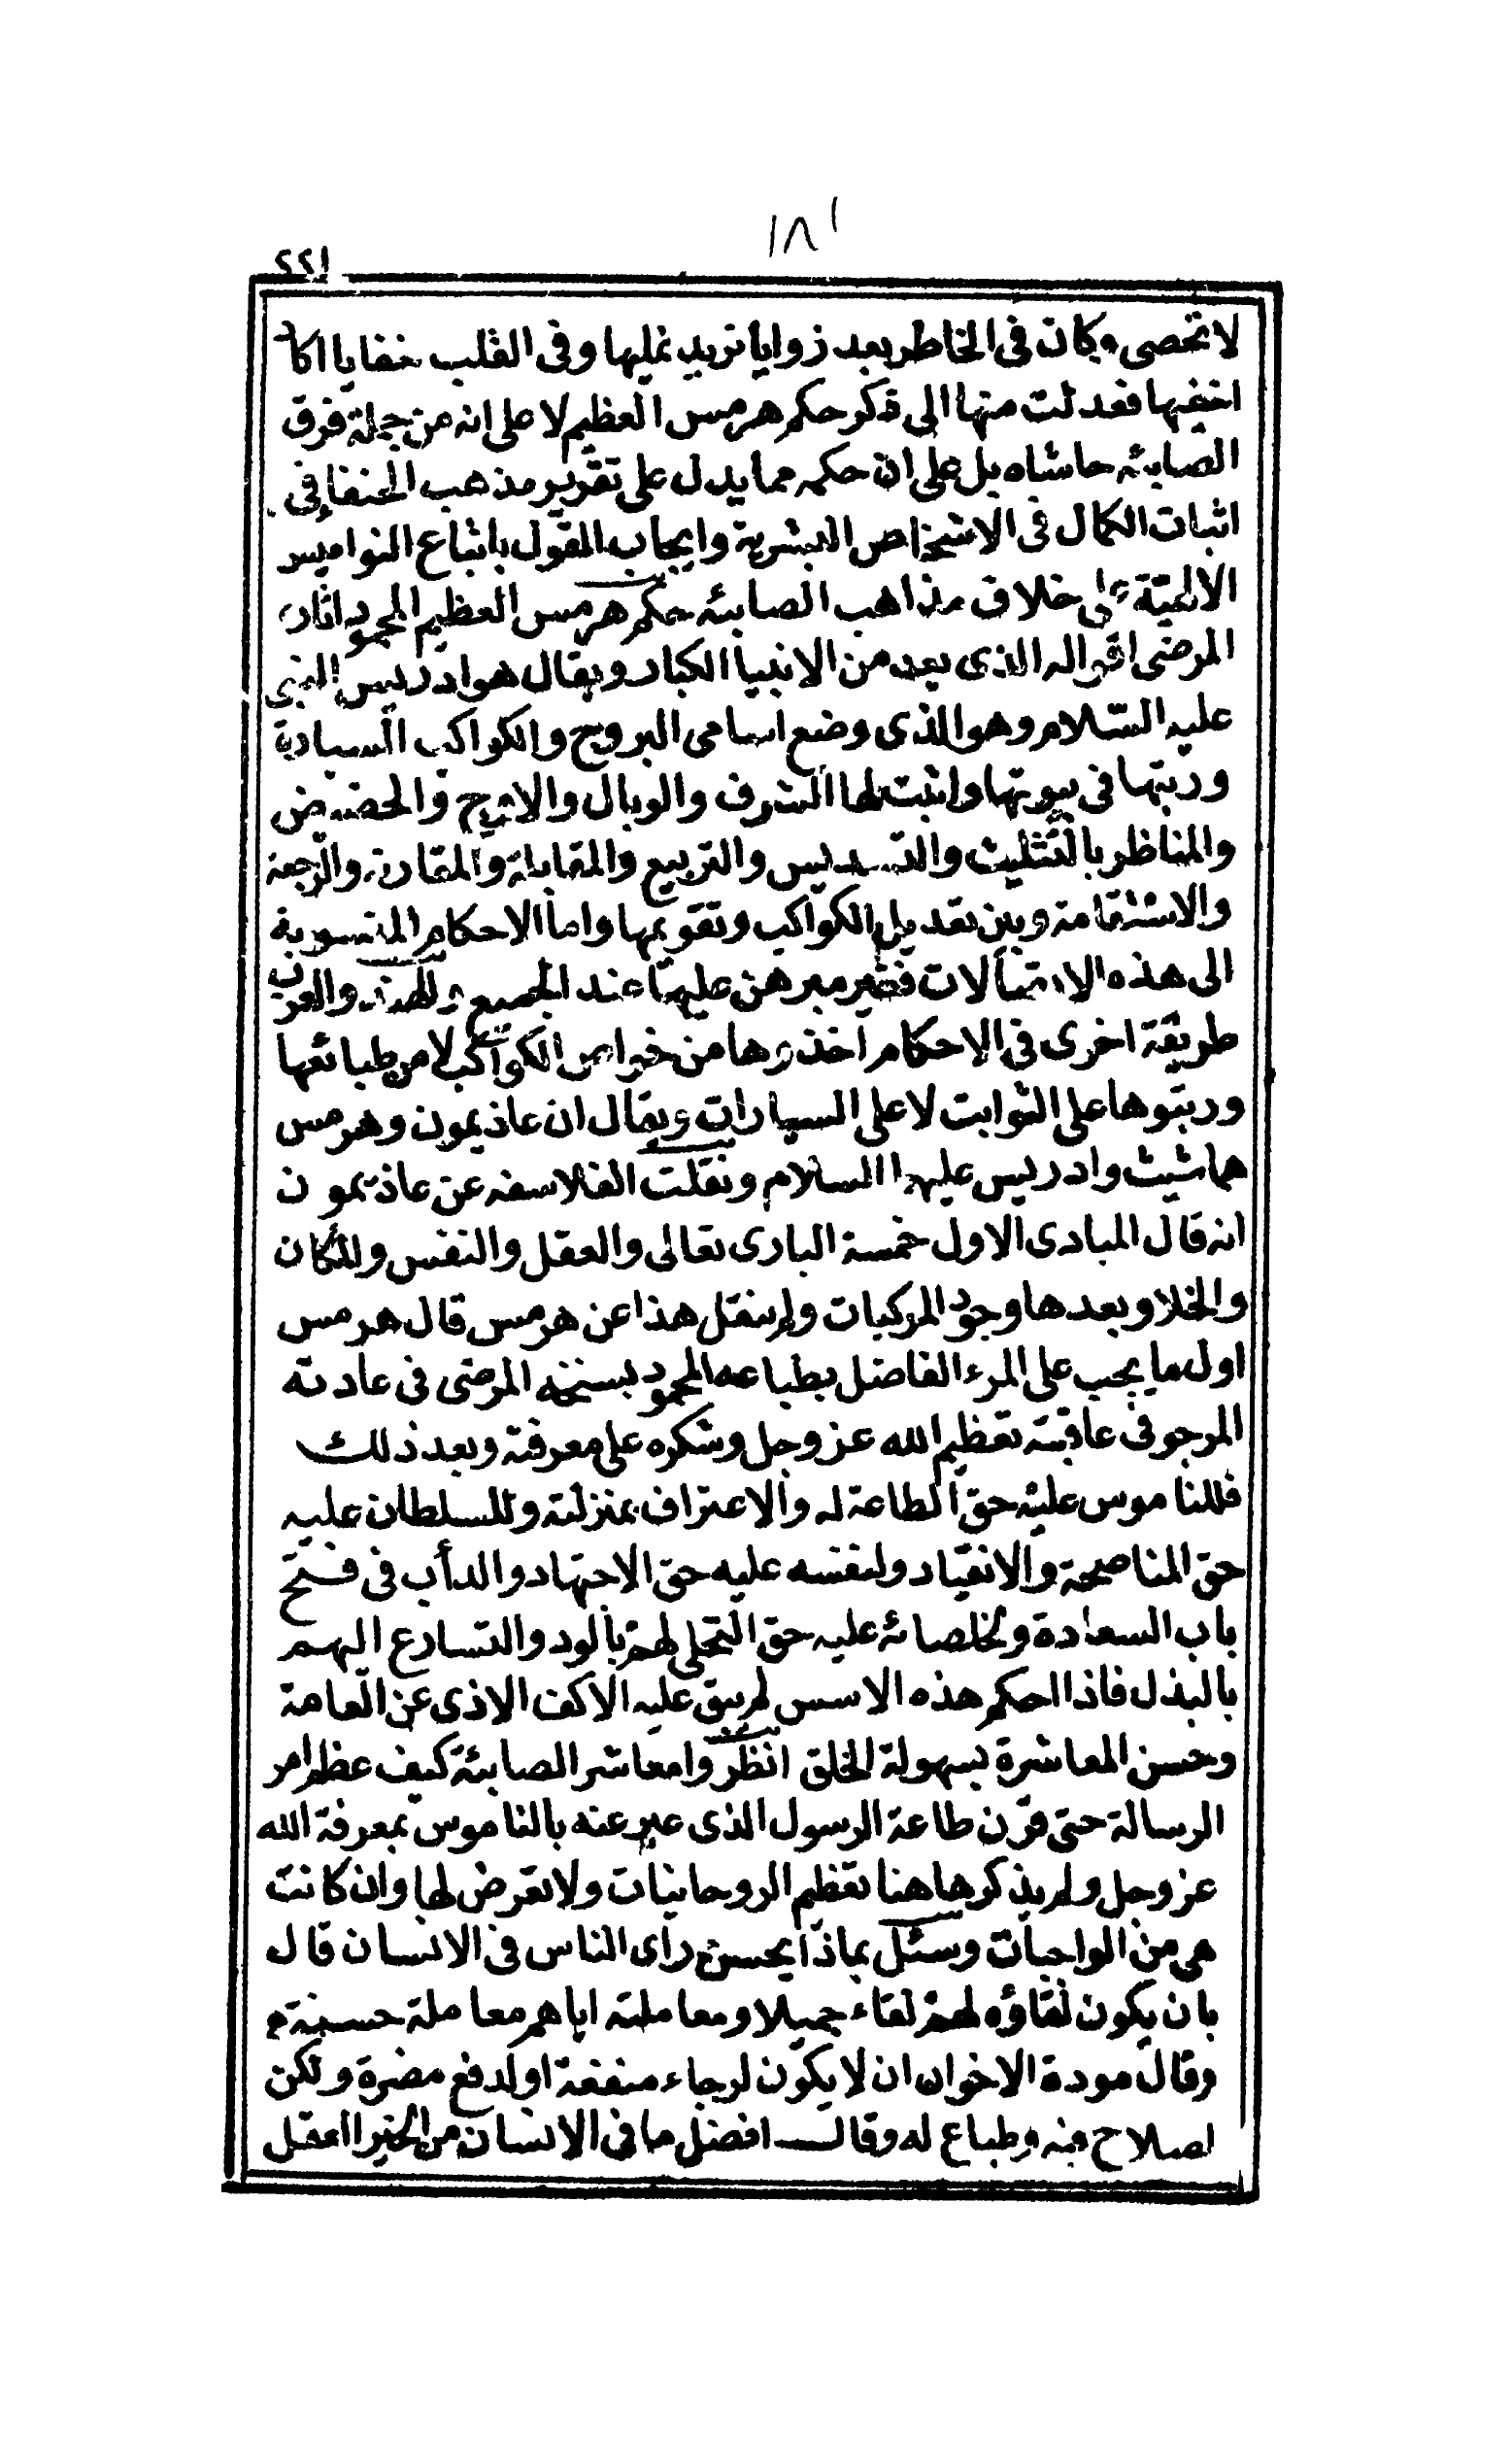 ١٨١
٢٢١
لا تحصى وكان فى الخاطر بعد زوايا نريد نمليها وفى القلب خفايا اكاد
اخفيها فعدلت منها الى ذكر حكم هرمس العظيم لا على انه من جملة فرق
الصابئه حاشاه بل على ان حكمه مما يدل على تقرير مذهب الحنفا فى
اثبات الكمال فى الاشخاص البشرية وايجاب القول باتباع النواميس
الالهية على خلاف مذاهب الصابئه حكم هرمس العظيم المحمود اثاره
المرضى اقواله الذى يعد من الانبيا الكبار ويقال هو ادريس النبى
عليه السّلام وهو الذى وضع اسامى البروج والكواكب السيارة
ورتبها فى بيوتها واثبت لها الشرف والوبال والاوج والحضيض
والمناظر بالتثليث والتسديس والتربيع والمقابلة والمقارنة والرجعة
والاستقامة وبين تعديل الكواكب وتقويمها واما الاحكام المنسوبة
الى هذه الاتصالات فغير مبرهن عليها عند الجميع وللهند والعرب
طريقة اخرى فى الاحكام اخذوها من خواص الكواكب لا من طبائعها
ورتبوها على الثوابت لا على السيارات ويقال ان عاذيمون وهرمس
هما شيث وادريس عليهما السلام ونقلت الفلاسفه عن عاذيمون
انه قال المبادى الاول خمسة البارى تعالى والعقل والنفس والمكان
والخلا وبعدها وجود المركبات ولم ينقل هذا عن هرمس قال هرمس
اول ما يجب على المرء الفاضل بطباعه المحمود بسنخه المرضى فى عادته
المرجو فى عاقبته تعظيم الله عز وجل وشكره على معرفته وبعد ذلك
فللناموس عليه حق الطاعة له والاعتراف بمنزلته وللسلطان عليه
حق المناصحة والانقياد ولنفسه عليه حق الاجتهاد والدأب فى فتح
باب السعادة ولخلصائه عليه حق التحلى لهم بالود والتسارع اليهم
بالبذل فاذا احكم هذه الاسس لم يبق عليه الا كف الاذى عن العامة
وحسن المعاشرة بسهولة الخلق انظروا معاشر الصابئة كيف عظم امر
الرسالة حتى قرن طاعة الرسول الذى عبر عنه بالناموس بمعرفة الله
عز وجل ولم يذكر هاهنا تعظيم الروحانيات ولا تعرض لها وان كانت
هى من الواجبات وسئل بماذا يحسن راى الناس فى الانسان قال
بان يكون لقاؤه لهم لقاء جميلا ومعاملته اياهم معاملة حسنة
وقال مودة الاخوان ان لا يكون لرجاء منفعة او لدفع مضرة ولكن
لصلاح منه وطباع له وقال افضل ما فى الانسان من الخير العقل